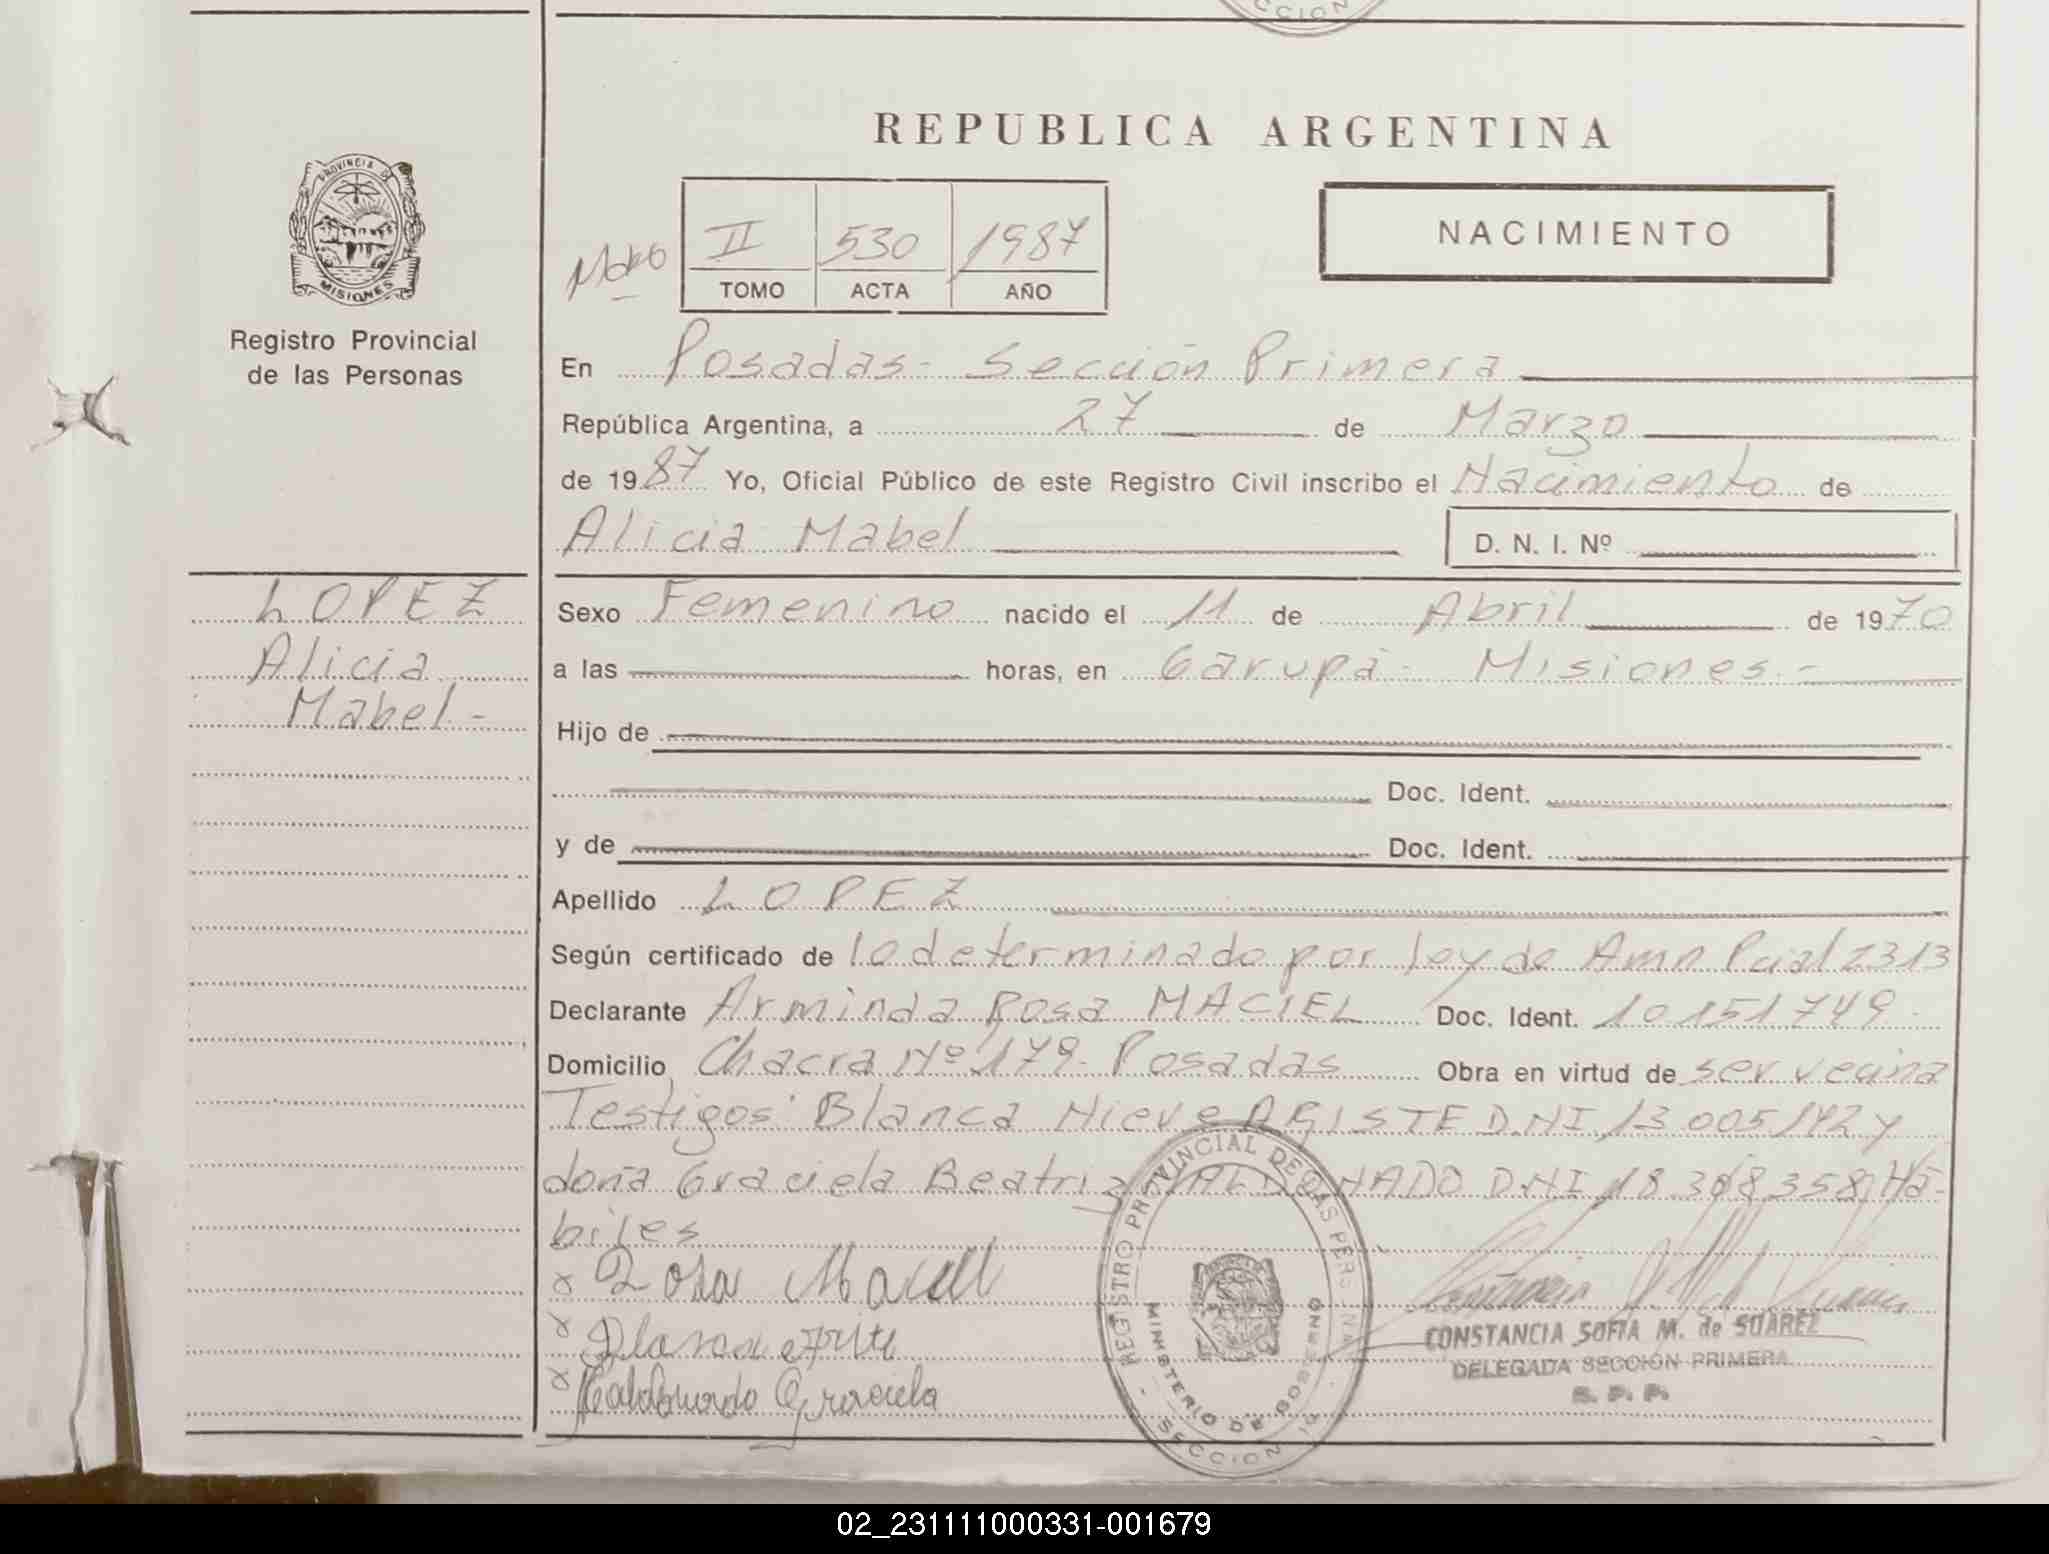 CCION
REPUBLICA ARGENTINA
PROVINCIA DE
MISIONES
Registro Provincial
de las Personas
II 530 1987
TOMO ACTA AÑO
NACIMIENTO
En Posadas - Sección Primera
República Argentina, a 27 de Marzo
de 1987 Yo, Oficial Público de este Registro Civil inscribo el Nacimiento de
Alicia Mabel D. N. I. Nº
LOPEZ
Alicia
Mabel -
Sexo Femenino nacido el 11 de Abril de 1970
a las horas, en Garupá - Misiones.-
Hijo de
Doc. Ident.
y de Doc. Ident.
Apellido LOPEZ
Según certificado de lo determinado por ley de Amn Pcial 2313
Declarante Arminda Rosa MACIEL Doc. Ident. 10151749
Domicilio Chacra Nº 179 - Posadas Obra en virtud de ser vecina
Testigos: Blanca Nieve DNI 13 005142 y
doña Graciela Beatriz MALDONADO DNI 18.308358 Há-
biles
x Rosa Maciel
x
x Maldonado Graciela
REGISTRO PROVINCIAL DE LAS PERSONAS
MINISTERIO DE GOBIERNO
SECCION 1a
CONSTANCIA SOFIA M. de SUAREZ
DELEGADA SECCION PRIMERA
R. P. P.
02_231111000331-001679